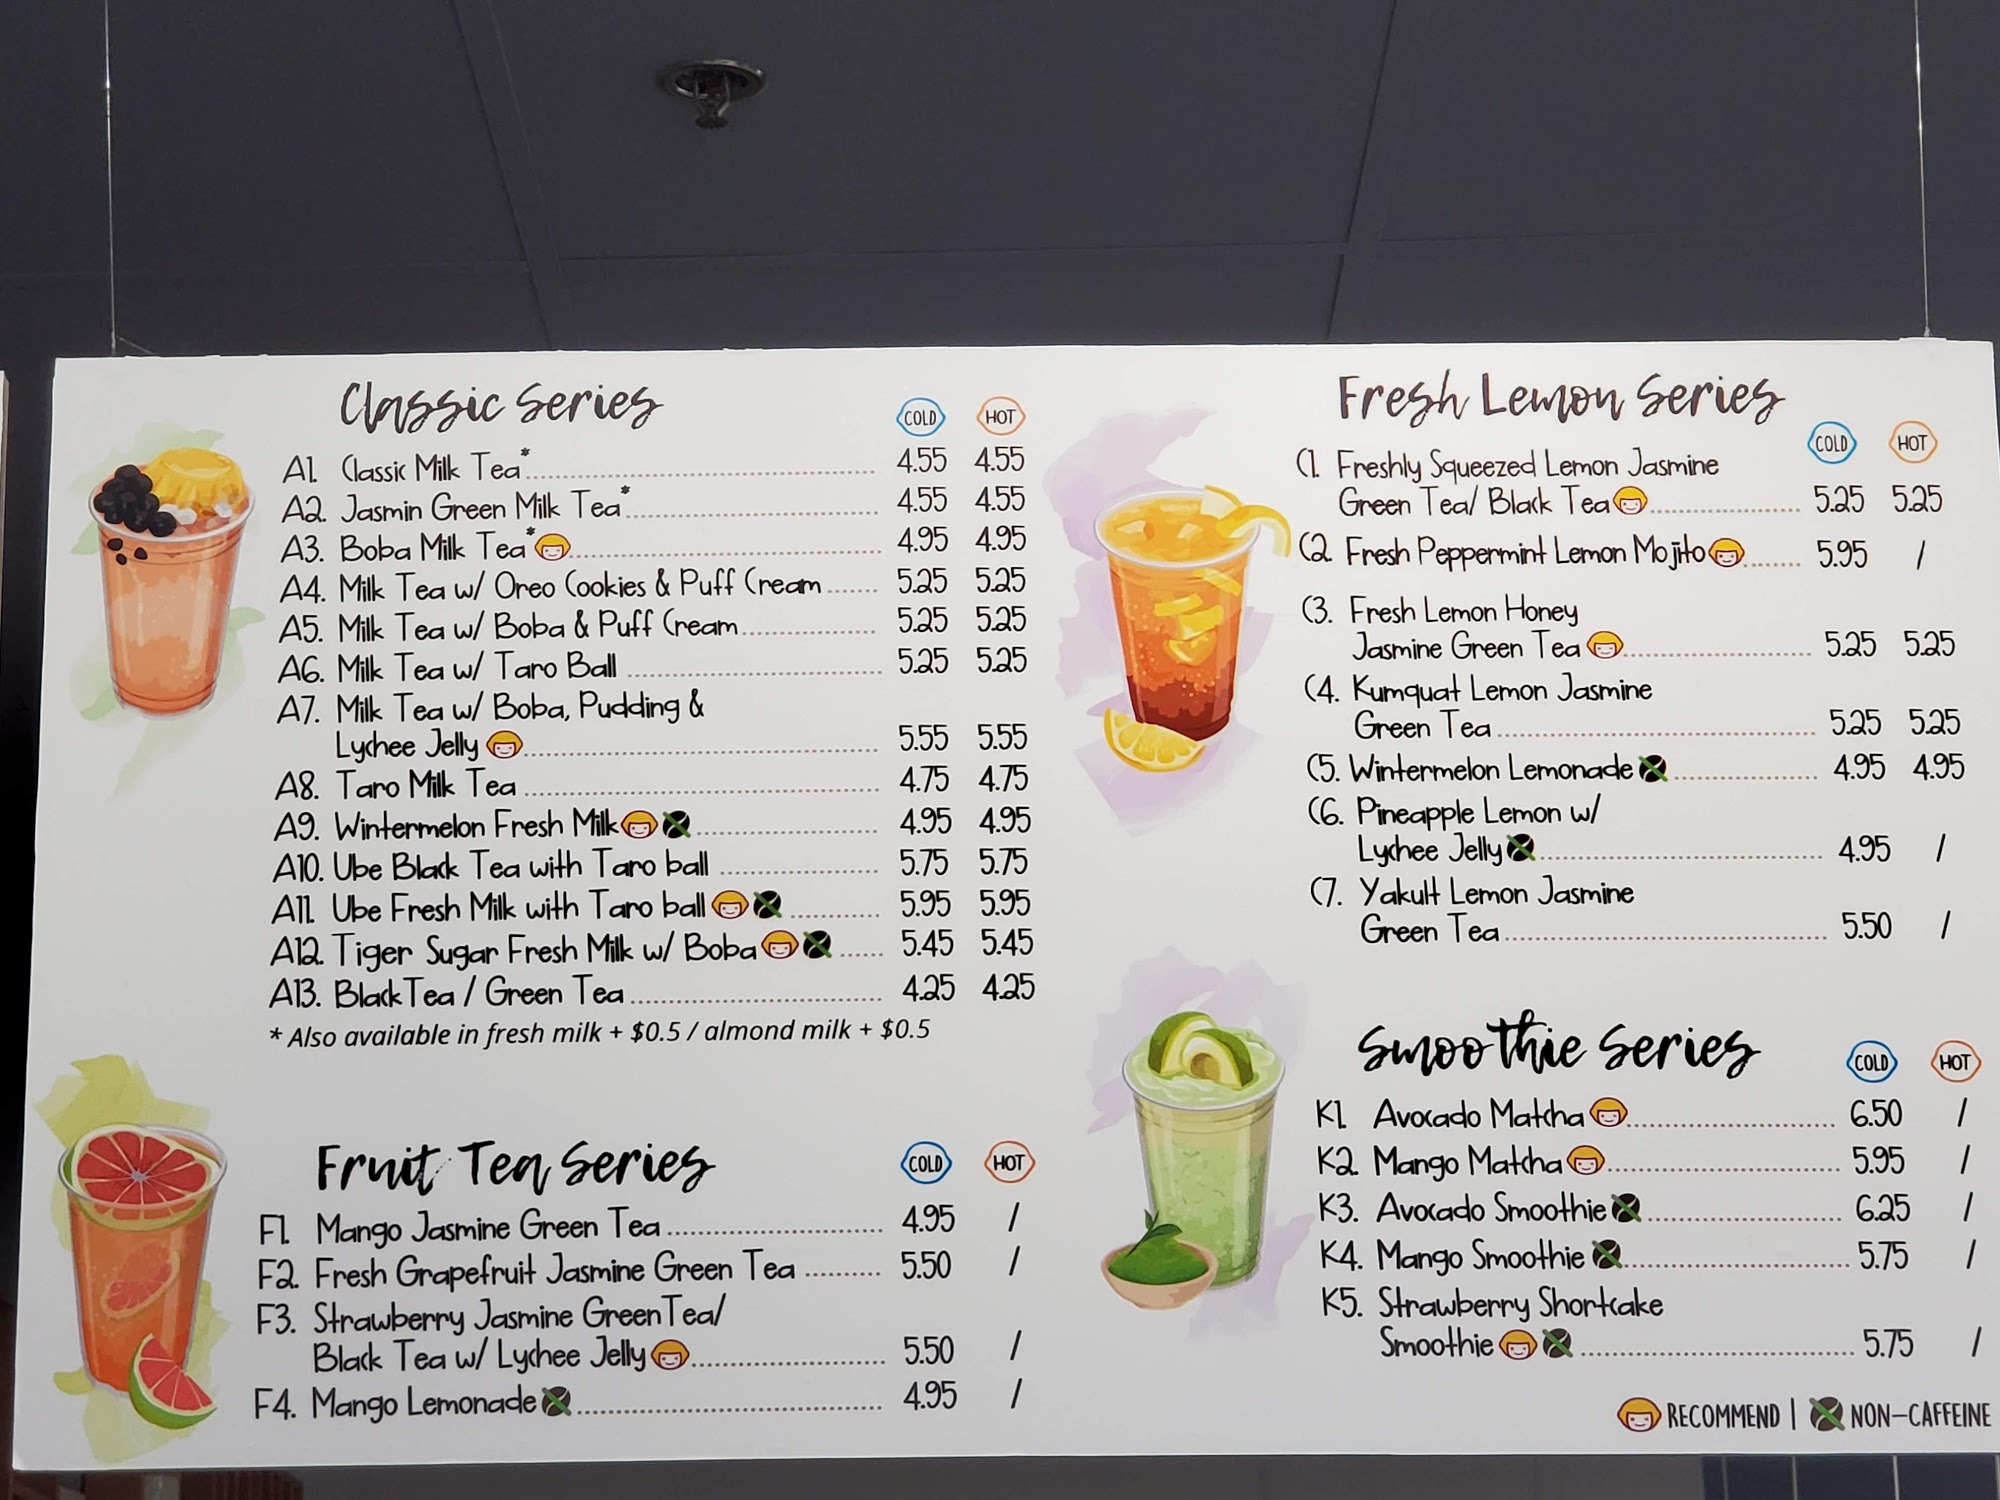 Classic Series
COLD HOT
A1. Classic Milk Tea* 4.55 4.55
A2. Jasmin Green Milk Tea* 4.55 4.55
A3. Boba Milk Tea* 4.95 4.95
A4. Milk Tea w/ Oreo Cookies & Puff Cream 5.25 5.25
A5. Milk Tea w/ Boba & Puff Cream 5.25 5.25
A6. Milk Tea w/ Taro Ball 5.25 5.25
A7. Milk Tea w/ Boba, Pudding &
Lychee Jelly 5.55 5.55
A8. Taro Milk Tea 4.75 4.75
A9. Wintermelon Fresh Milk 4.95 4.95
A10. Ube Black Tea with Taro ball 5.75 5.75
A11. Ube Fresh Milk with Taro ball 5.95 5.95
A12. Tiger Sugar Fresh Milk w/ Boba 5.45 5.45
A13. Black Tea / Green Tea 4.25 4.25
* Also available in fresh milk + $0.5 / almond milk + $0.5
Fruit Tea Series
COLD HOT
F1. Mango Jasmine Green Tea 4.95 /
F2. Fresh Grapefruit Jasmine Green Tea 5.50 /
F3. Strawberry Jasmine Green Tea/
Black Tea w/ Lychee Jelly 5.50 /
F4. Mango Lemonade 4.95 /
Fresh Lemon Series
COLD HOT
C1. Freshly Squeezed Lemon Jasmine
Green Tea/ Black Tea 5.25 5.25
C2. Fresh Peppermint Lemon Mojito 5.95 /
C3. Fresh Lemon Honey
Jasmine Green Tea 5.25 5.25
C4. Kumquat Lemon Jasmine
Green Tea 5.25 5.25
C5. Wintermelon Lemonade 4.95 4.95
C6. Pineapple Lemon w/
Lychee Jelly 4.95 /
C7. Yakult Lemon Jasmine
Green Tea 5.50 /
Smoothie Series
COLD HOT
K1. Avocado Matcha 6.50 /
K2. Mango Matcha 5.95 /
K3. Avocado Smoothie 6.25 /
K4. Mango Smoothie 5.75 /
K5. Strawberry Shortcake
Smoothie 5.75 /
RECOMMEND | NON-CAFFEINE